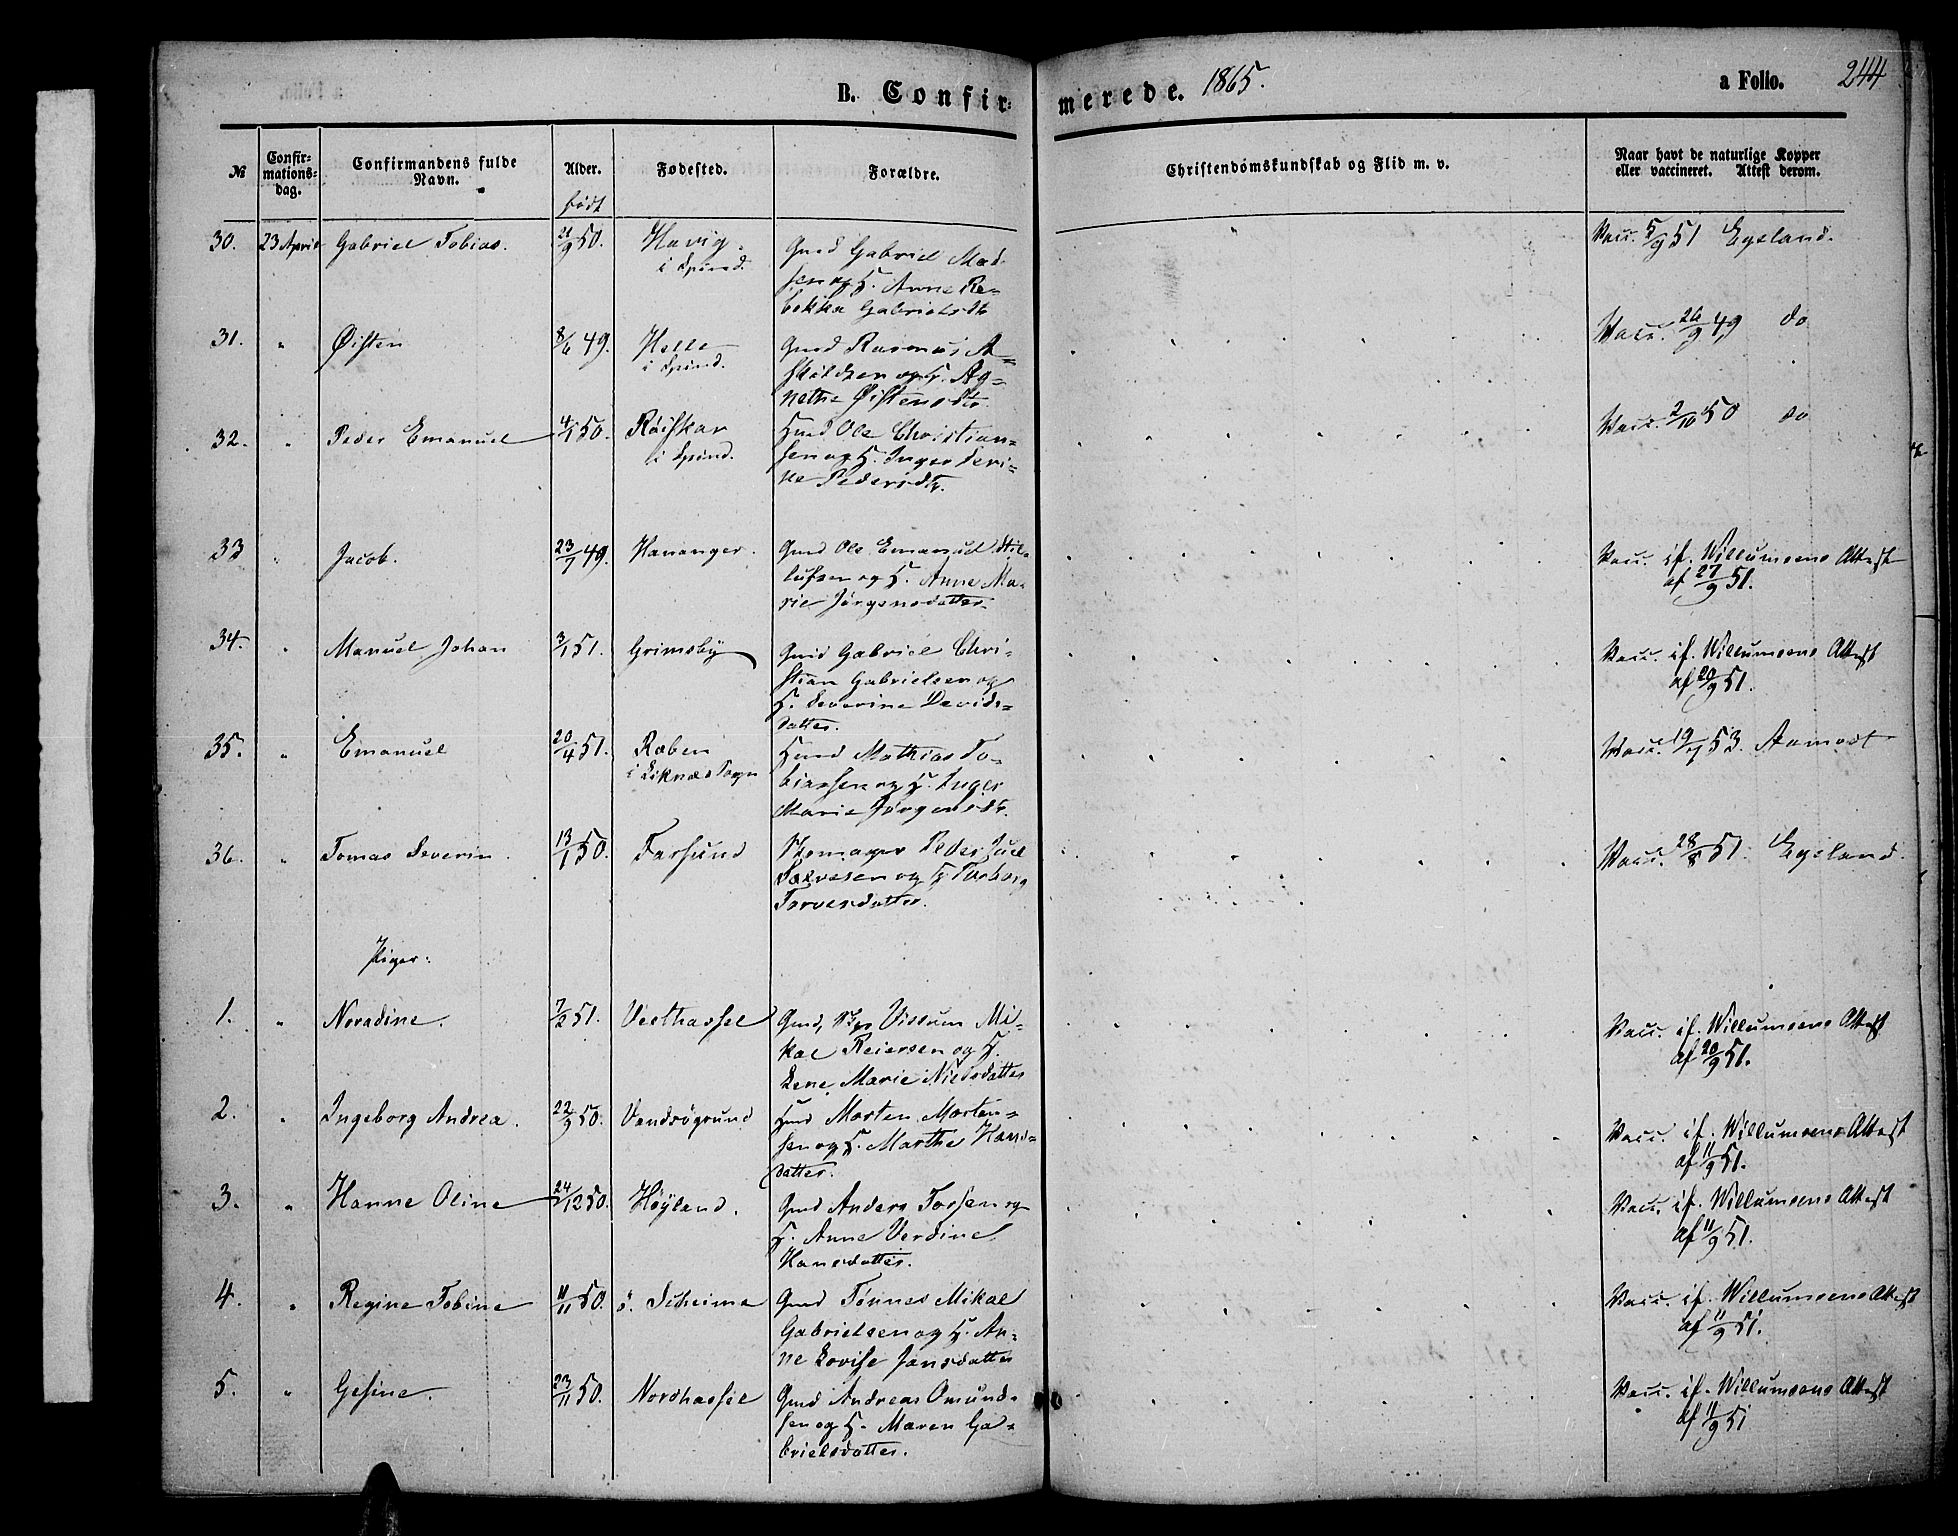 B. Confirmerede. 1865. a Folio. 244
№ Confirmationsdag. Confirmandens fulde Navn. Alder. født Fødested. Forældre. Christendomskundskab og Flid m. v. Naar havt de naturlige Kopper eller vaccineret. Attest derom.
30. 23 April Gabriel Tobias. 21/9 50. Havig. Gmd Gabriel Mad- Vacc. 5/9 51 Egeland.
i Spind. sen og H. Anne Re-
bekka Gabrielsdtr
31. " Øisten 8/6 49. Helle Gmd Rasmus A- Vacc. 26/9 49 do
i Spind. skildsen og H. Ag-
nethe Øistensdtr.
32. " Peder Emanuel 4/1 50. Røiskar Hmd Ole Christian- Vacc. 2/10 50 do
i Spind. sen og H. Inger Seri-
ne Pedersdtr.
33 " Jacob. 23/7 49. Hananger. Gmd Ole Emanuel
og H. Anne Ma-
rie Jørgensdatter.
Vacc. if. Willumsens Attest
af 27/9 51.
34. " Manuel Johan 3/1 51. Grimsby Gmd Gabriel Chri- Vacc. if. Willumsens Attest
stian Gabrielsen og af 20/9 51.
H. Severine Davids-
datter.
35. " Emanuel 20/4 51. Ræben Hmd Mathias To- Vacc. 19/7 53. Aamodt
i Liknæs Sogn biassen og H. Inger
Marie Jørgensdtr.
36. " Tomas Severin. 13/1 50. Farsund Skomager Peder Juel Vacc. 28/8 51. Egeland.
Salvesen og H Torborg
Torvesdatter.
Piger.
1. " Noradine. 7/2 51. Vesthassel Gmd, Vissum Mi- Vacc. if. Willumsens Attest
kal Reiersen og H. af 20/9 51.
Lene Marie Nielsdatter
2. " Ingeborg Andrea. 22/9 50. Vandsøgrund Hmd Morten Morten- Vacc. if. Willumsens Attest
sen og H. Marthe Hans- af 11/9 51.
datter.
3. " Hanne Oline 24/12 50. Høyland. Gmd Anders Torsen og Vacc. if. Willumsens Attest
H. Anne Verdine af 11/9 51.
Hansdatter.
4. " Regine Tobine 11/11 50. ö. Skeime Gmd Tønnes Mikal Vacc. if. Willumsens Attest
Gabrielsen og H. An- af 11/9 51.
ne Lovise Jansdatter
5. " Gesine. 23/11 50. Nordhassel Gmd Andreas Omund- Vacc. if. Willumsens Attest
sen og H. Maren Ga- af 11/9 51
brielsdatter.